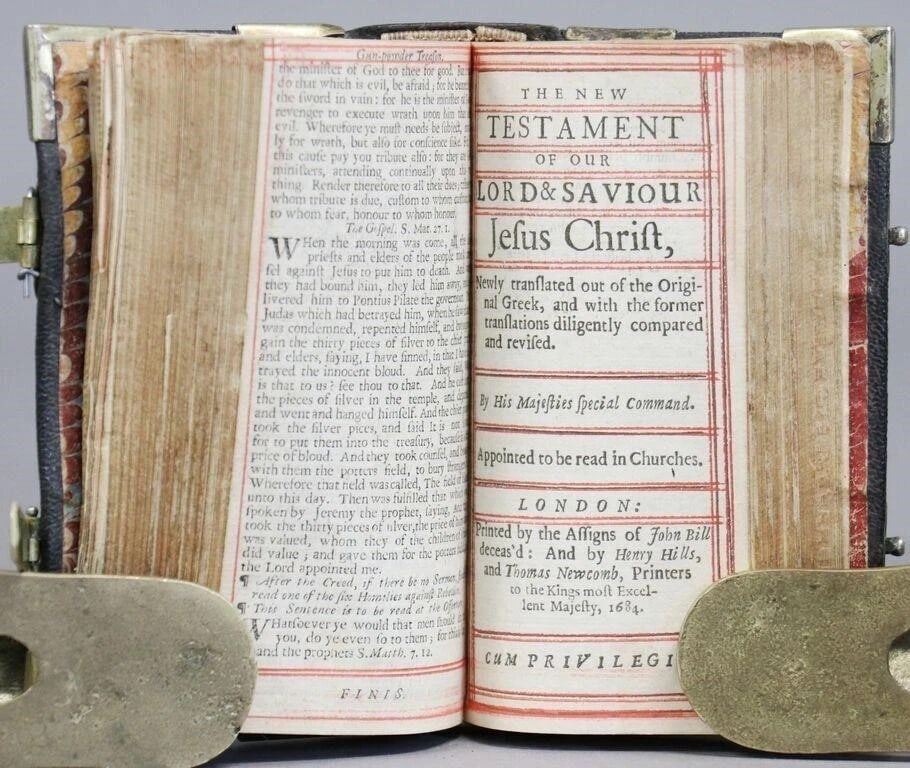 Gun-powder Treason.
the minister of God to thee for good. But
do that which is evil, be afraid; for he bear
the sword in vain: for he is the minister of
revenger to execute wrath upon him
evil. Wherefore ye muſt needs be ſubject, no
ly for wrath, but alſo for conſcience ſake. For
this cauſe pay you tribute alſo: for they are
miniſters, attending continually upon
thing. Render therefore to all their dues;
whom tribute is due, cuſtom to whom
to whom fear, honour to whom honour.
The Goſpel. S. Mat. 27. 1.
WHen the morning was come, all the
prieſts and elders of the people
ſel againſt Jeſus to put him to death. And
they had bound him, they led him away,
livered him to Pontius Pilate the governour.
Judas which had betrayed him, when he ſaw
was condemned, repented himſelf, and
gain the thirty pieces of ſilver to the chief
and elders, ſaying, I have ſinned, in that I
trayed the innocent bloud. And they ſaid,
is that to us? ſee thou to that. And he caſt
the pieces of ſilver in the temple, and
and went and hanged himſelf. And the chief
took the ſilver pices, and ſaid It is not
for to put them into the treaſury, becauſe
price of bloud. And they took counſel, and
with them the potters field, to bury ſtrangers
Wherefore that field was called, The field of
unto this day. Then was fulfilled that which
ſpoken by Jeremy the prophet, ſaying, And
took the thirty pieces of ſilver, the price of
was valued, whom they of the children of
did value; and gave them for the potters
the Lord appointed me.
¶ After the Creed, if there be no Sermon,
read one of the ſix Homilies againſt Rebellion.
¶ This Sentence is to be read at the Offertory.
WHatſoever ye would that men ſhould
you, do ye even ſo to them; for
and the prophets S. Matth. 7. 12.
FINIS.
THE NEW
TESTAMENT
OF OUR
LORD & SAVIOUR
Jeſus Chriſt,
Newly tranſlated out of the Origi-
nal Greek, and with the former
tranſlations diligently compared
and reviſed.
By His Majeſties ſpecial Command.
Appointed to be read in Churches.
LONDON:
Printed by the Aſſigns of John Bill
deceas'd: And by Henry Hills,
and Thomas Newcomb, Printers
to the Kings moſt Excel-
lent Majeſty, 1684.
CUM PRIVILEGI